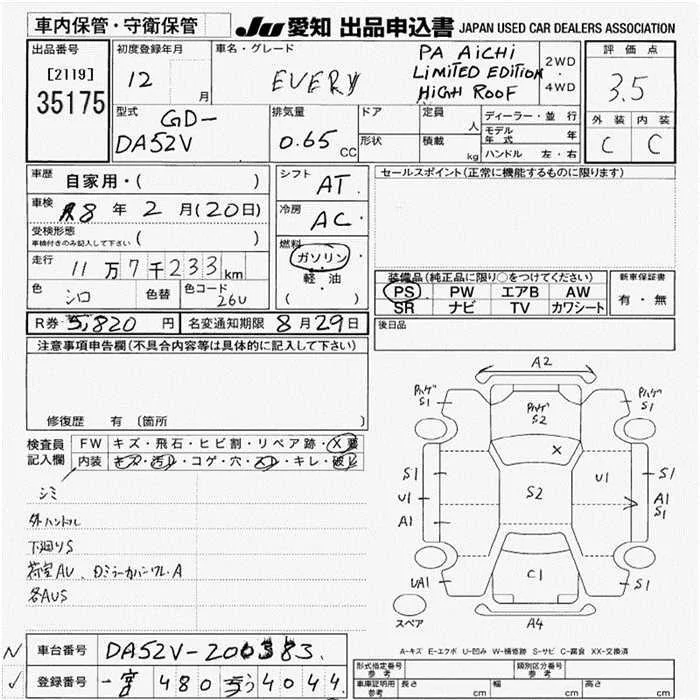 車内保管・守衛保管
JU 愛知 出品申込書 JAPAN USED CAR DEALERS ASSOCIATION
出品番号
[2119]
35175
初度登録年月
12 月
車名・グレード
EVERY
PA AiCHi
LiMiTED EDiTiON
HiGH ROOF
2WD
・
4WD
評価点
3.5
外装 内装
C C
型式
GD-
DA52V
排気量
0.65 CC
ドア
形状
定員
人
積載
kg
ディーラー・並行
モデル年式 年
ハンドル 左・右
車歴 自家用・( )
車検 R8年 2月(20日)
受検形態
車検付きのみ記入して下さい ( )
走行 11万7千233km
色 シロ 色替 色コード 26U
シフト AT
冷房 AC
燃料
ガソリン
・
軽・油
( )
セールスポイント(正常に機能するものに限ります)
装備品(純正品に限り○をつけてください)
PS PW エアB AW
SR ナビ TV カワシート
新車保証書
有・無
後日品
R券 5,820 円 名変通知期限 8月29日
注意事項申告欄(不具合内容等は具体的に記入して下さい)
修復歴 有 〔箇所 〕
検査員
記入欄
FW キズ・飛石・ヒビ割・リペア跡・X要
内装 キズ・汚レ・コゲ・穴・スレ・キレ・破レ
シミ
外ハンドル
下廻りS
荷室AU、Dミラーカバーワレ・A
各AUS
A2
Pハゲ
S1
Pハゲ
S2
Pハゲ
S1
X
S1
U1
A1
S2
U1
S1
A1
S1
UA1
C1
S1
スペア
A4
N 車台番号 DA52V-200383.
✓ 登録番号 一宮 480 う 4044
A-キズ E-エクボ U-凹み W-補修跡 S-サビ C-腐食 XX-交換済
形式指定番号
参考
類別区分番号
参考
車庫証明用
参考
長さ cm 幅 cm 高さ cm